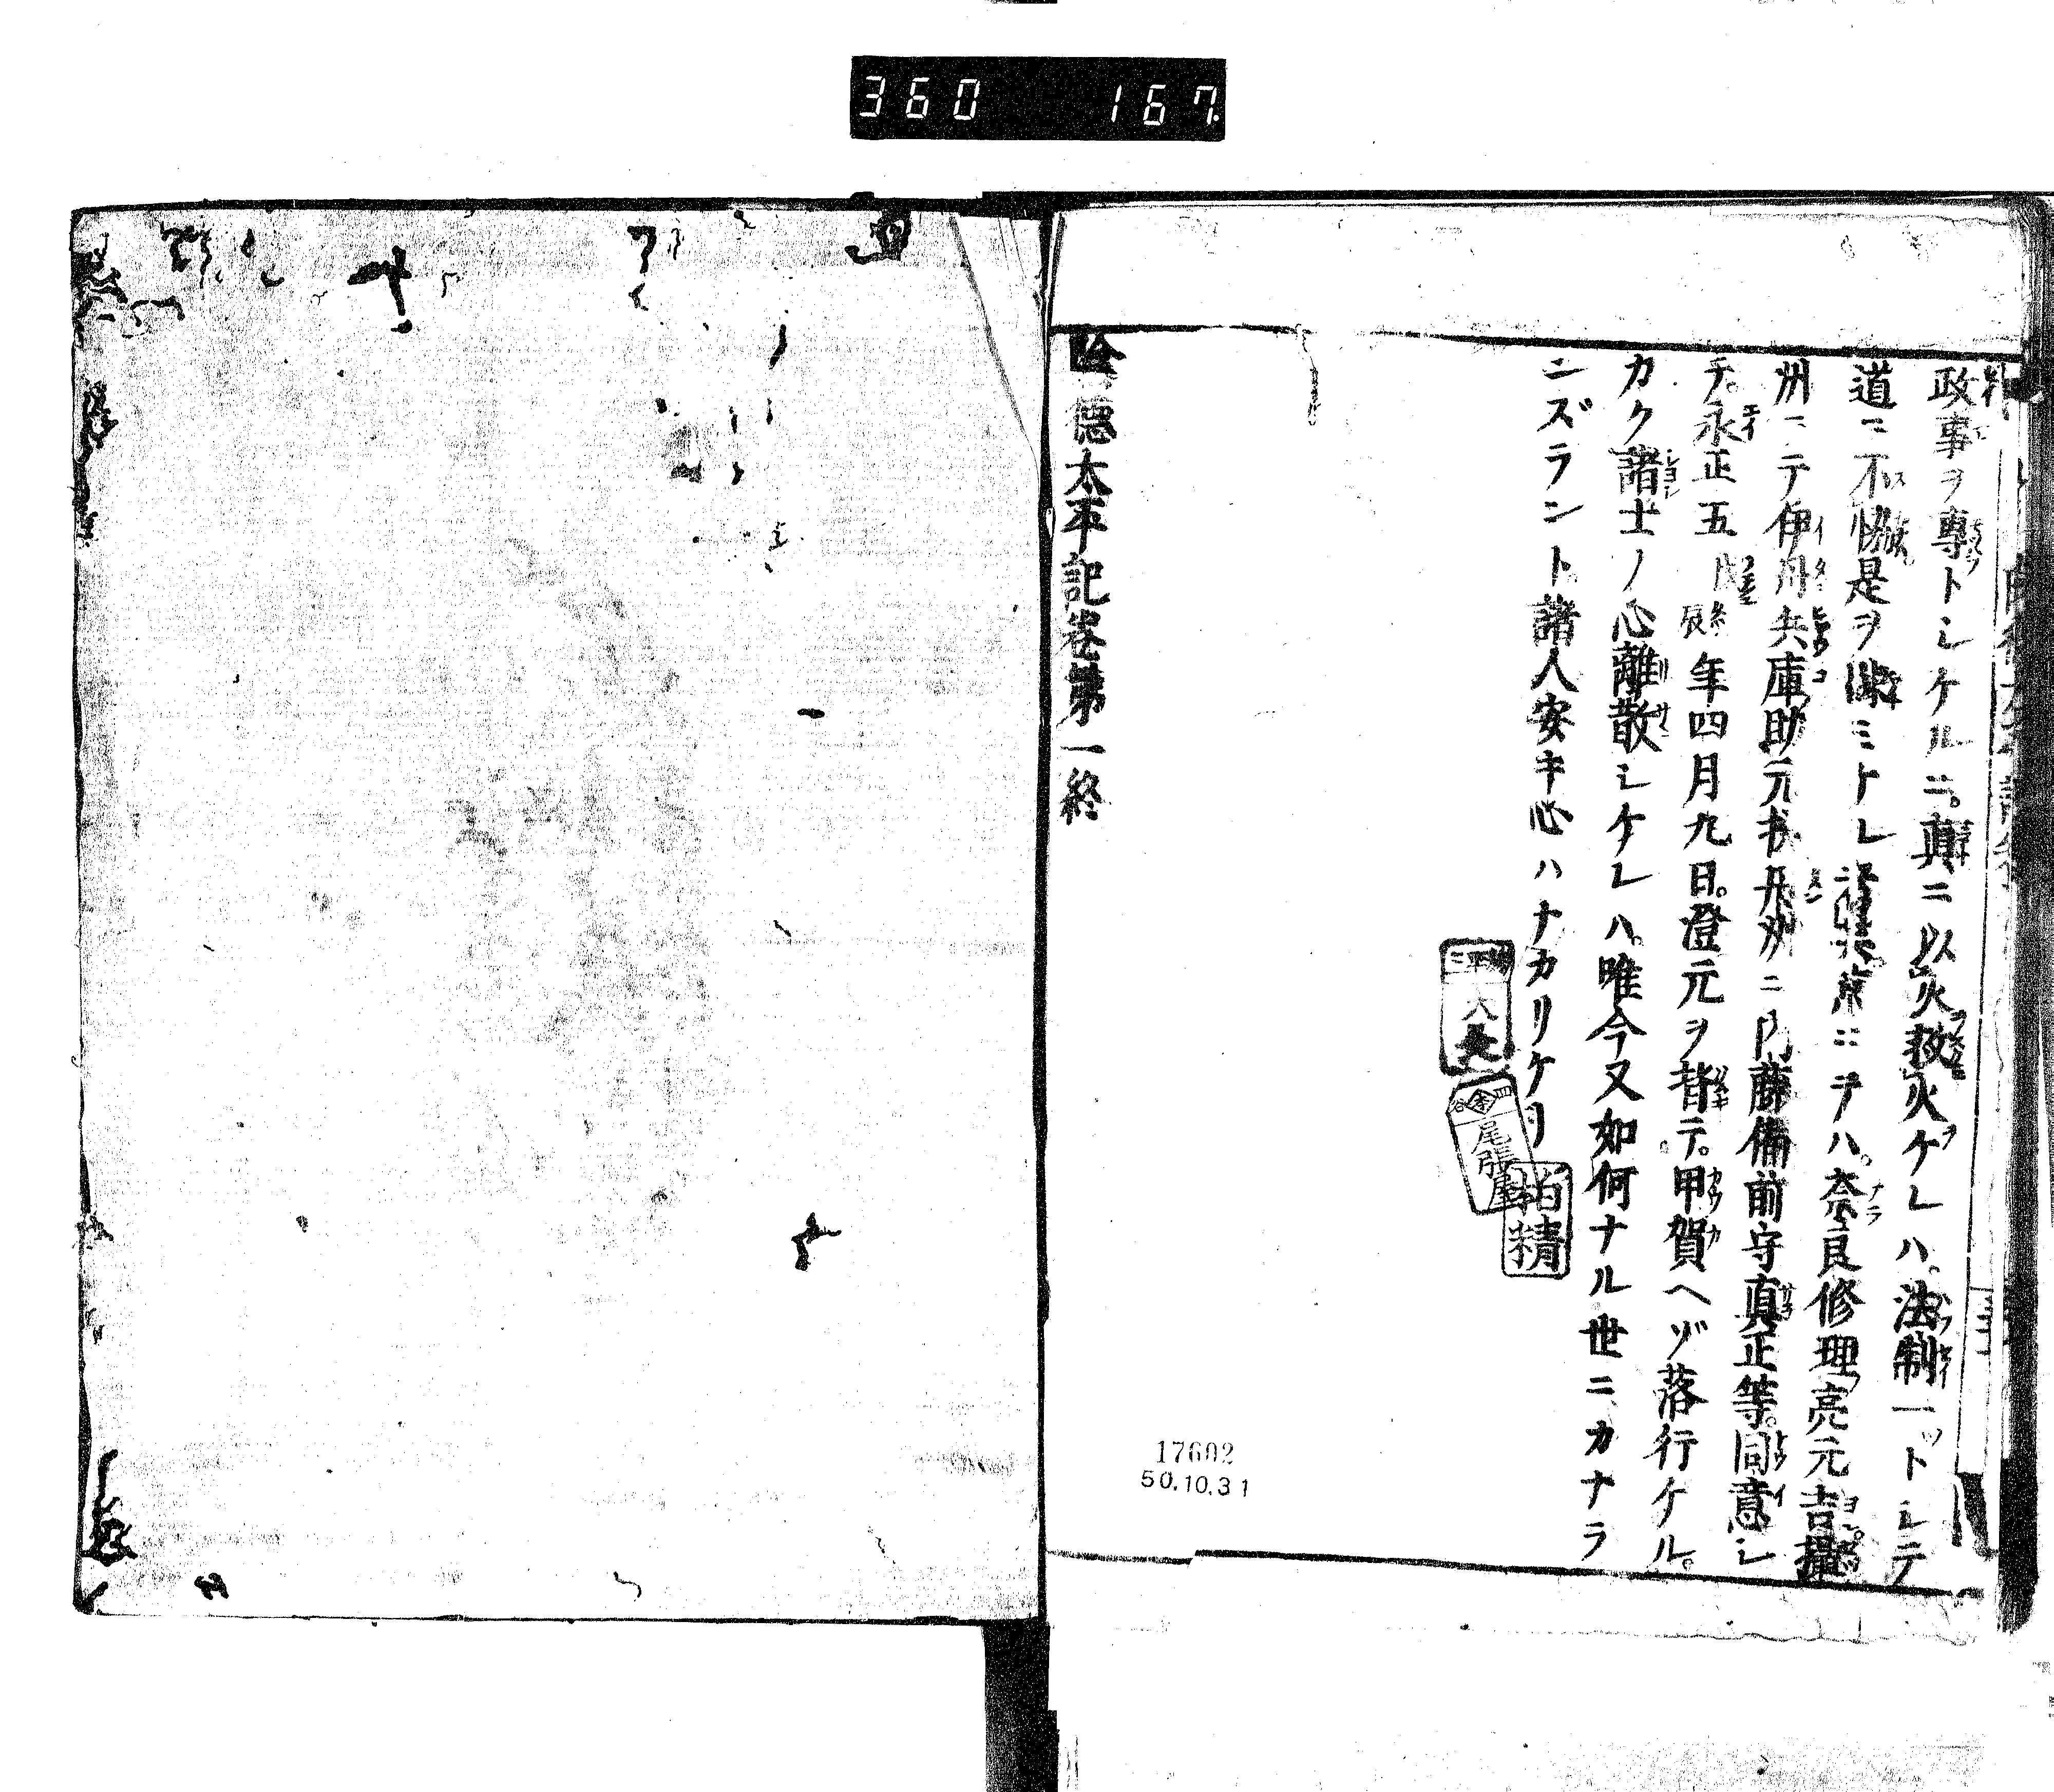 360 167
政事ヲ專トシケルニ。真ニ以火救火ケレハ。法制一ットシテ
道ニ不協是ヲ
ミトレ
ニテハ。奈良修理亮元吉攝
州ニテ伊丹兵庫助元
丹州ニ内藤備前守真正等。同意シ
テ。永正五戊辰年四月九日。澄元ヲ背テ。甲賀ヘゾ落行ケル。
カク諸士ノ心離散シケレハ。唯今又如何ナル世ニカナラ
ンズラント。諸人安キ心ハナカリケリ
尾張屋
柏精
德太平記卷第一終
17602
50.10.31